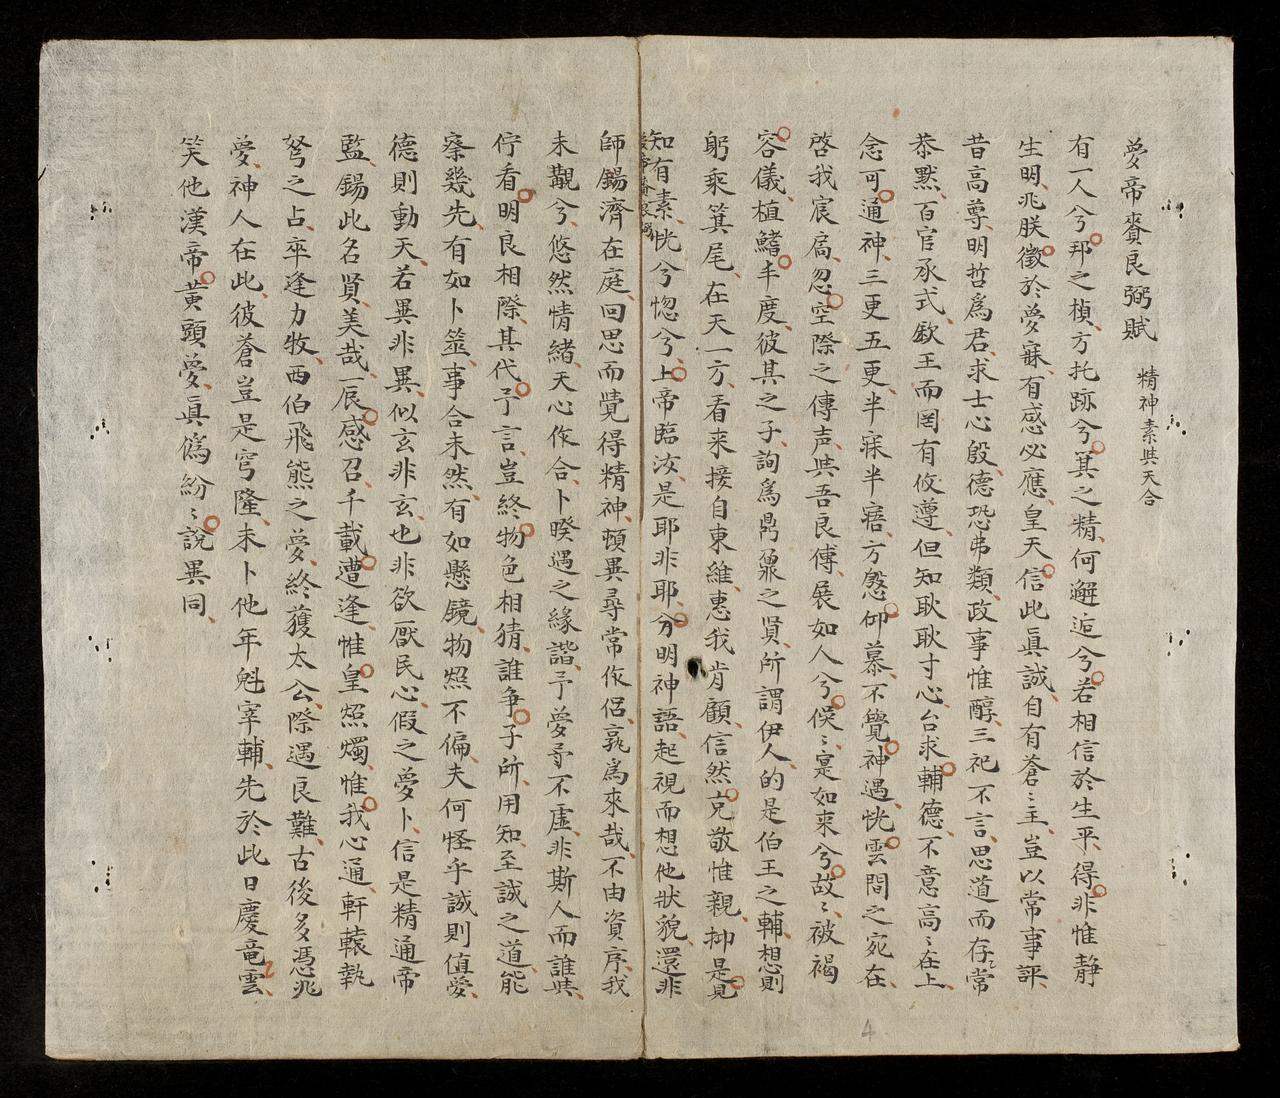 夢帝賚良弼賦 精神素與天合
有一人兮邦之楨方托跡兮箕之精何邂逅兮若相信於生平得非惟静
生明兆朕徵於夢寐有感必應皇天信此真誠自有蒼〻主豈以常事評
昔高尊明哲爲君求士心殷德恐弗類政事惟醇三祀不言思道而存〻常
恭默百官承式欽王而罔有攸遵但知耿耿寸心台求輔德不意高〻在上
念可通神三更五更半寐半寤方慇仰慕不覺神遇恍雲間之宛在
啓我宸扄忽空際之傳声與吾良傅展如人兮俣〻寔如来兮故〻被褐
容儀植鰭丰度彼其之子詢爲鼎鼐之賢所謂伊人的是伯王之輔想則
躬乘箕尾在天一方看来接自東維惠我肯顧信然克敬惟親抑是見
知有素恍兮惚兮上帝臨汝是耶非耶分明神語起視而想他狀貌還非
師錫濟在庭回思而覺得精神頓異尋常作侶孰爲來哉不由資序我
未覿兮悠然情緒天心作合卜暌遇之緣諧予夢予不虛非斯人而誰與
佇看明良相際其代予言豈終物色相猜誰争子所用知至誠之道能
察幾先有如卜筮事合未然有如懸鏡物照不偏夫何怪乎誠則値愛
德則動天若異非異似玄非玄也非欲厭民心假之夢卜信是精通帝
監錫此名賢美哉一辰感召千載遭逢惟皇炤燭惟我心通軒轅執
弩之占卒逢力牧西伯飛熊之夢終獲太公際遇良難古後多憑兆
夢神人在此彼蒼豈是穹隆未卜他年魁宰輔先於此日慶竜雲
笑他漢帝黄頭夢真僞紛〻說異同